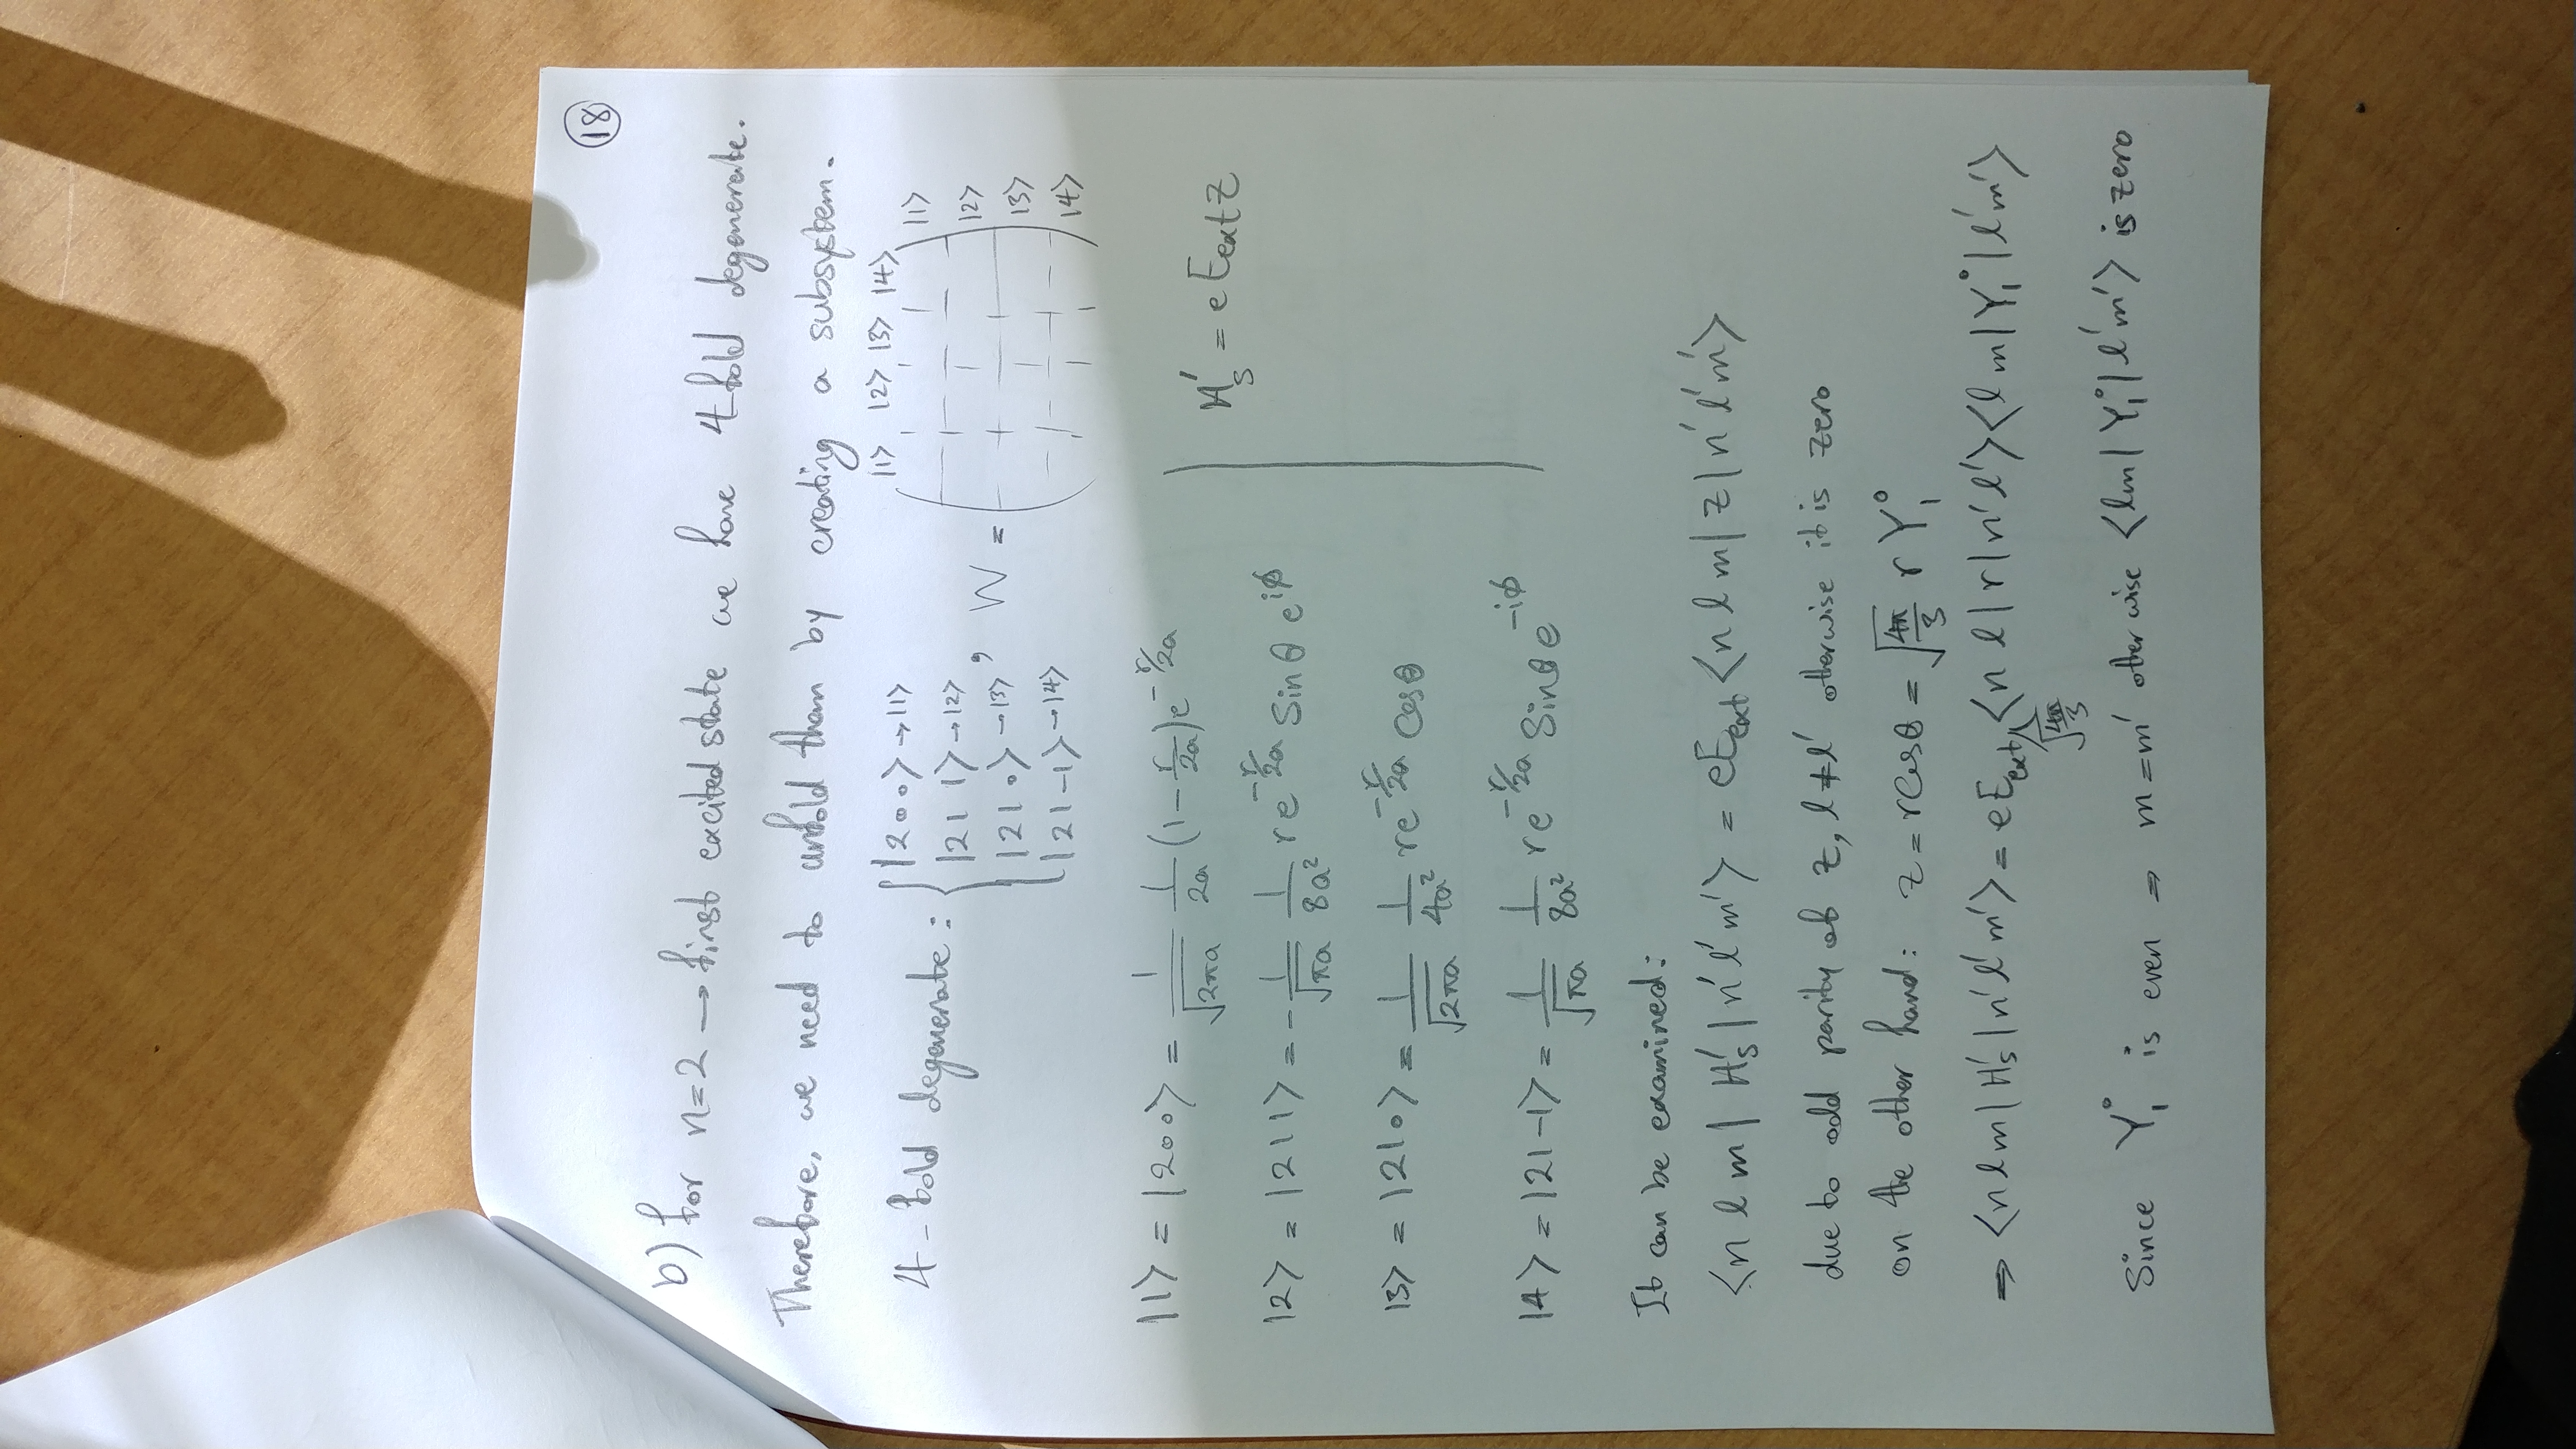 18
b) for n=2 → first excited state we have 4 fold degenerate.
Therefore, we need to unfold them by creating a subsystem.
4-fold degenerate: { |200⟩→|1⟩ |211⟩→|2⟩ |210⟩→|3⟩ |21-1⟩→|4⟩ , W = ( ) |1⟩ |2⟩ |3⟩ |4⟩ |1⟩ |2⟩ |3⟩ |4⟩
|1⟩ = |200⟩ = 1/√(2πa) 1/(2a) (1 - r/(2a)) e^(-r/2a)
H's = e Eext z
|2⟩ = |211⟩ = -1/√(πa) 1/(8a²) r e^(-r/2a) Sinθ e^(iφ)
|3⟩ = |210⟩ = 1/√(2πa) 1/(4a²) r e^(-r/2a) Cosθ
|4⟩ = |21-1⟩ = 1/√(πa) 1/(8a²) r e^(-r/2a) Sinθ e^(-iφ)
It can be examined:
⟨n l m| H's |n' l' m'⟩ = eEext ⟨n l m| z |n' l' m'⟩
due to odd parity of z, l≠l' otherwise it is zero
on the other hand: z = rCosθ = √(4π/3) r Y₁⁰
⇒ ⟨n l m| H's |n' l' m'⟩ = eEext √(4π/3) ⟨n l|r|n' l'⟩⟨l m|Y₁⁰|l' m'⟩
Since Y₁⁰ is even ⇒ m=m' otherwise ⟨lm|Y₁⁰|l'm'⟩ is zero